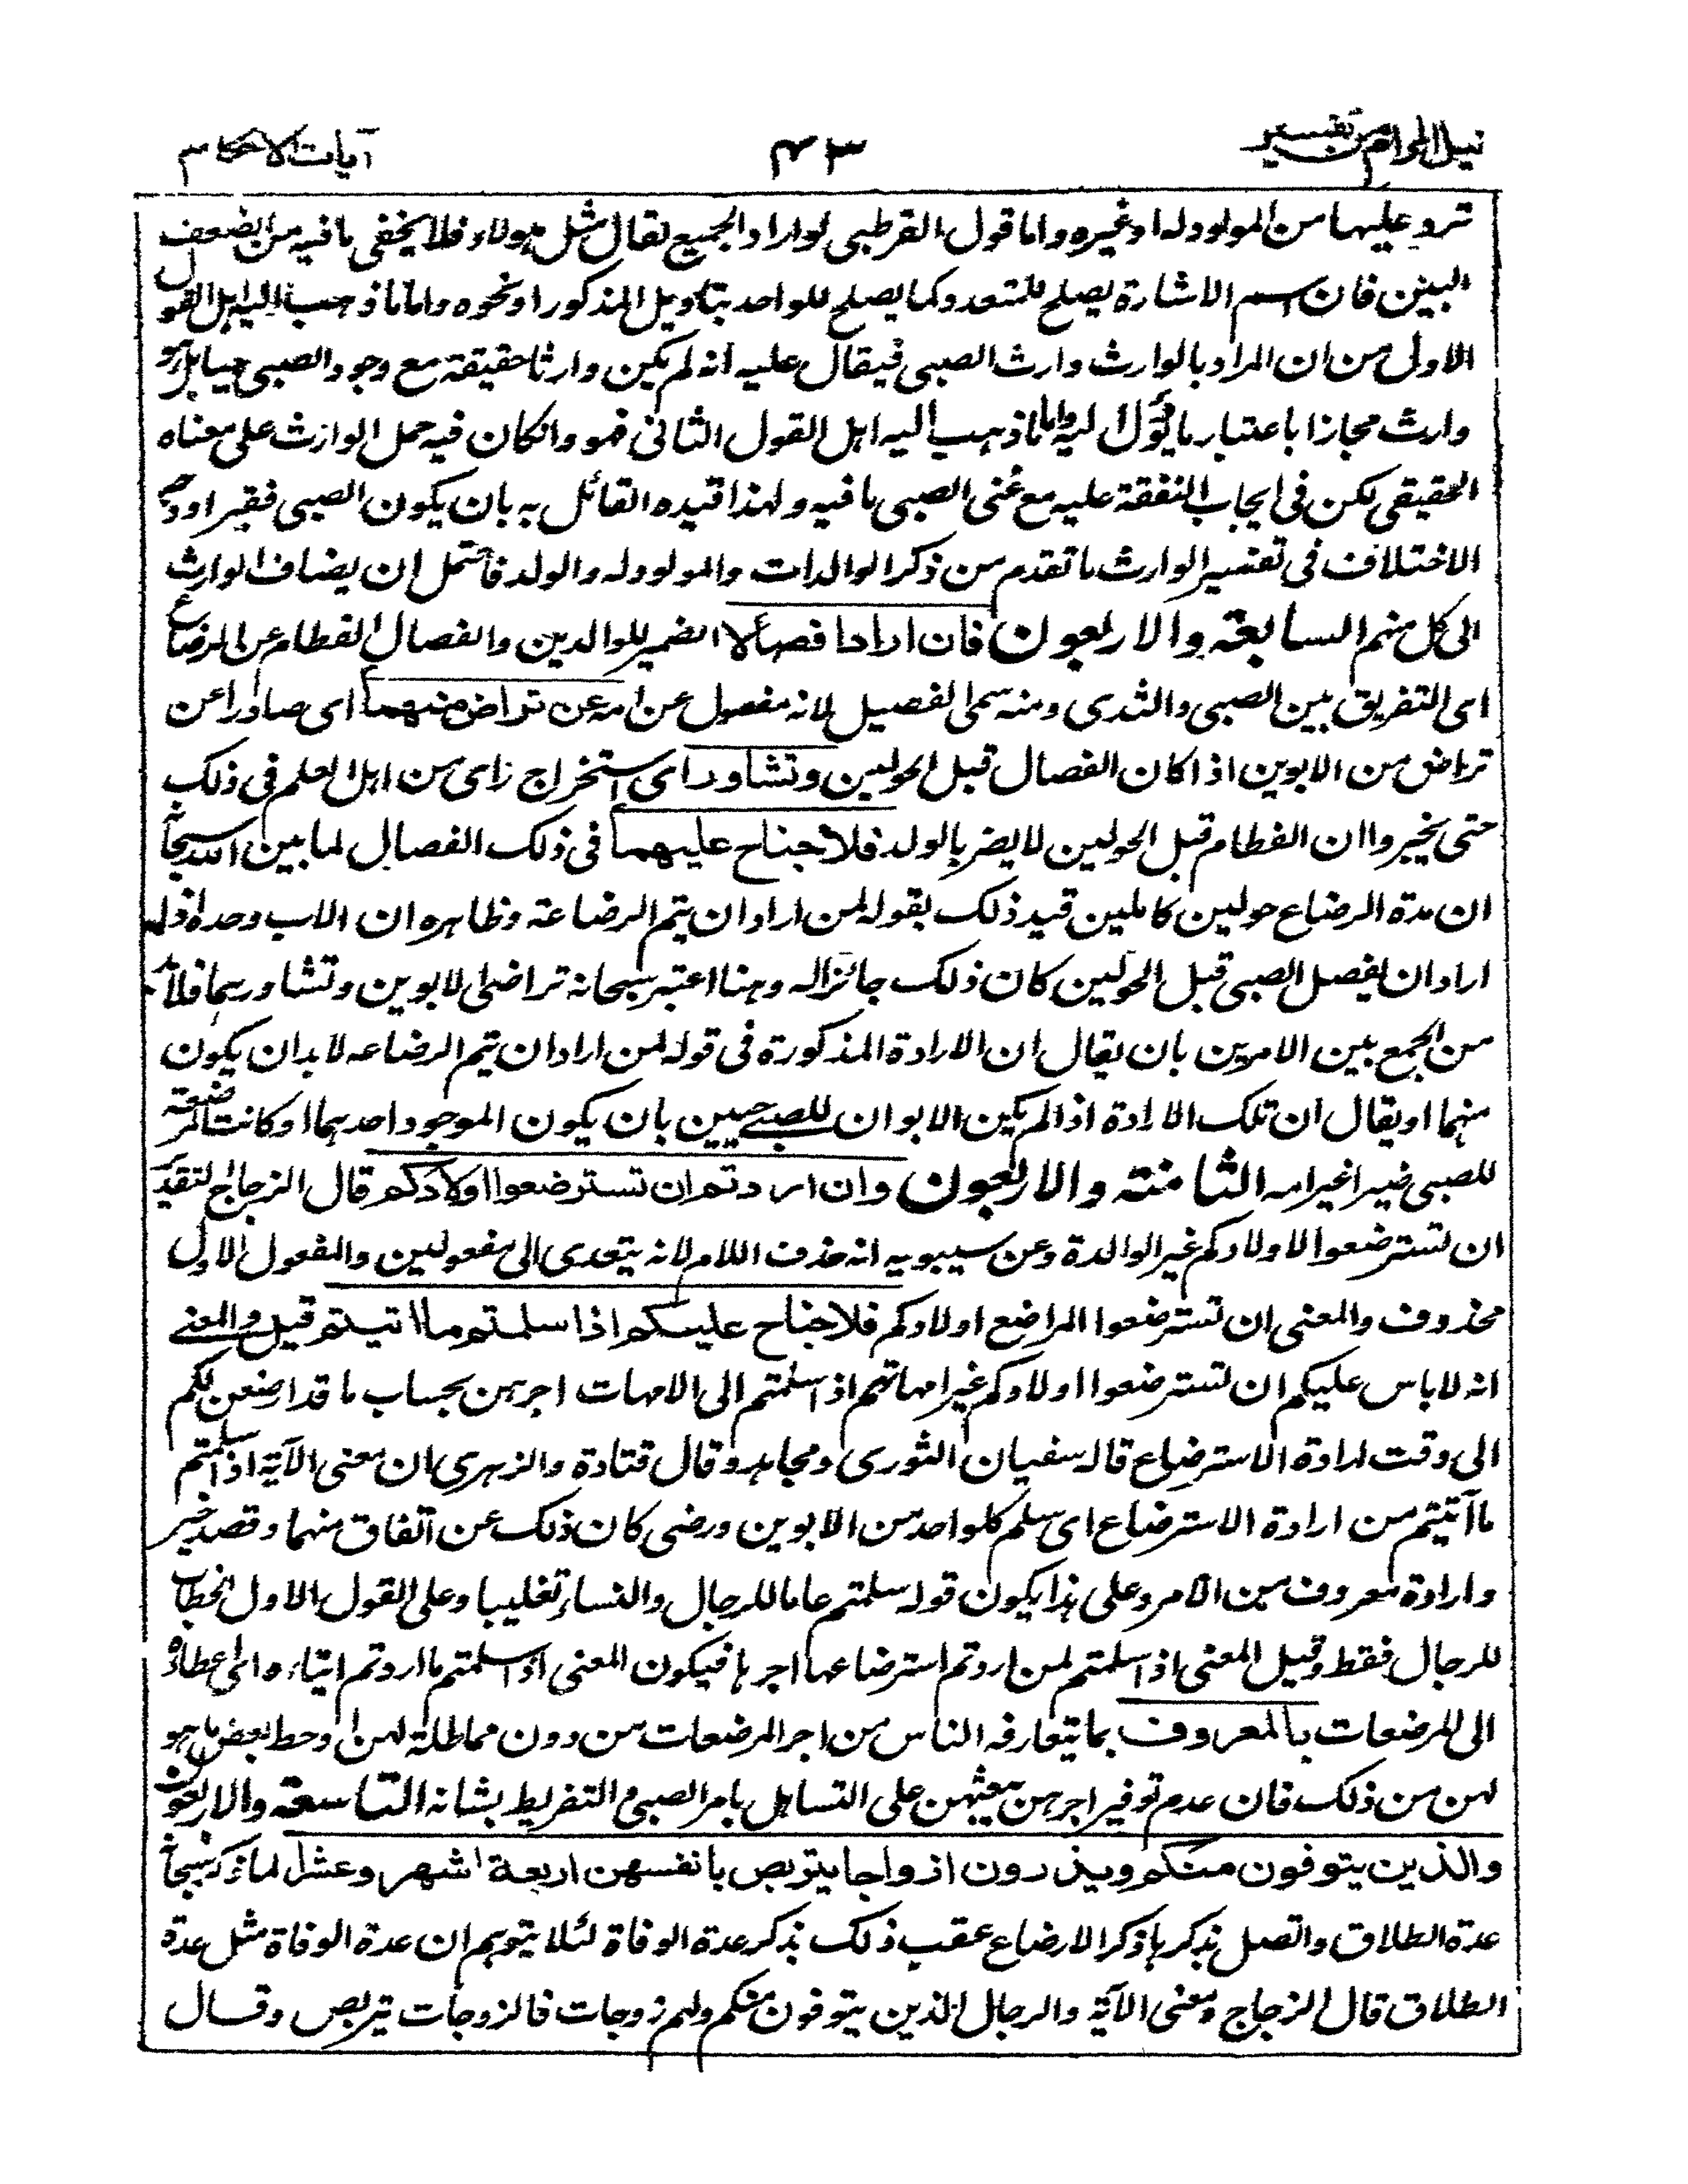 نيل المرام من تفسير ٤٣ آيات الاحكام
ترد عليها من المولود له او غيره واما قول القرطبي لو اراد الجميع لقال مثل هولاء فلا يخفى ما فيه من الضعف
البين فان اسم الاشارة يصلح للمتعدد كما يصلح للواحد بتاويل المذكور او نحوه واما ما ذهب اليه اهل القول
الاولى من ان المراد بالوارث وارث الصبي فيقال عليه انه لم يكن وارثا حقيقة مع وجود الصبي حيا بل هو
وارث مجازا باعتبار ما يؤل اليه واما ما ذهب اليه اهل القول الثاني فهو وانكان فيه حمل الوارث على معناه
الحقيقي لكن في ايجاب النفقة عليه مع غنى الصبي ما فيه ولهذا قيده القائل به بان يكون الصبي فقيرا ووجه
الاختلاف في تفسير الوارث ما تقدم من ذكر الوالدات والمولود له والولد فاحتمل ان يضاف الوارث
الى كل منهم السابعة والاربعون فان ارادا فصالا الضمير للوالدين والفصال الفطام عن الرضاع
اي التفريق بين الصبي والثدي ومنه سمي الفصيل لانه مفصول عن امه عن تراض منهما اي صادرا عن
تراض من الابوين اذا كان الفصال قبل الحولين وتشاور اي استخراج راى من اهل العلم في ذلك
حتى يخبروا ان الفطام قبل الحولين لا يضر بالولد فلا جناح عليهما في ذلك الفصال لما بين الله سبحانه
ان مدة الرضاع حولين كاملين قيد ذلك بقوله لمن اراد ان يتم الرضاعة وظاهره ان الاب وحده اذا
اراد ان يفصل الصبي قبل الحولين كان ذلك جائزا له وهنا اعتبر سبحانه تراضي الابوين وتشاورهما فلا بد
من الجمع بين الامرين بان يقال ان الارادة المذكورة في قوله لمن اراد ان يتم الرضاعه لابد ان يكون
منهما او يقال ان تلك الارادة اذا لم يكن الابوان للصبي حيين بان يكون الموجود احدهما او كانت المرضعة
للصبي ضيرا غير امه الثامنة والاربعون وان اردتم ان تسترضعوا اولادكم قال الزجاج التقدير
ان تسترضعوا لاولادكم غير الوالدة وعن سيبويه انه حذف اللام لانه يتعدى الى مفعولين والمفعول الاول
محذوف والمعنى ان تسترضعوا المراضع اولادكم فلا جناح عليكم اذا سلمتم ما اتيتم قيل والمعنى
انه لا باس عليكم ان تسترضعوا اولادكم غير امهاتهم اذا سلمتم الى الامهات اجرهن بحساب ما قد ارضعن لكم
الى وقت ارادة الاسترضاع قاله سفيان الثوري ومجاهد وقال قتادة والزهري ان معنى الآية اذا سلمتم
ما آتيتم من ارادة الاسترضاع اي سلم كل واحد من الابوين ورضي كان ذلك عن اتفاق منهما وقصد خير
وارادة معروف من الامر وعلى هذا يكون قوله سلمتم عاما للرجال والنساء تغليبا وعلى القول الاول الخطاب
للرجال فقط وقيل المعنى اذا سلمتم لمن اردتم استرضاعها اجرها فيكون المعنى اذا سلمتم ما اردتم ايتاءه اي اعطاءه
الى المرضعات بالمعروف بما يتعارفه الناس من اجر المرضعات من دون مماطلة لهن او حط بعض ما هو
لهن من ذلك فان عدم توفير اجرهن يبعثهن على التساهل بامر الصبي والتفريط بشانه التاسعة والاربعون
والذين يتوفون منكم ويذرون ازواجا يتربصن بانفسهن اربعة اشهر وعشرا لما ذكر سبحانه
عدة الطلاق واتصل بذكرها ذكر الارضاع عقب ذلك بذكر عدة الوفاة لئلا يتوهم ان عدة الوفاة مثل عدة
الطلاق قال الزجاج ومعنى الآية والرجال الذين يتوفون منكم ولهم زوجات فالزوجات يتربصن وقال